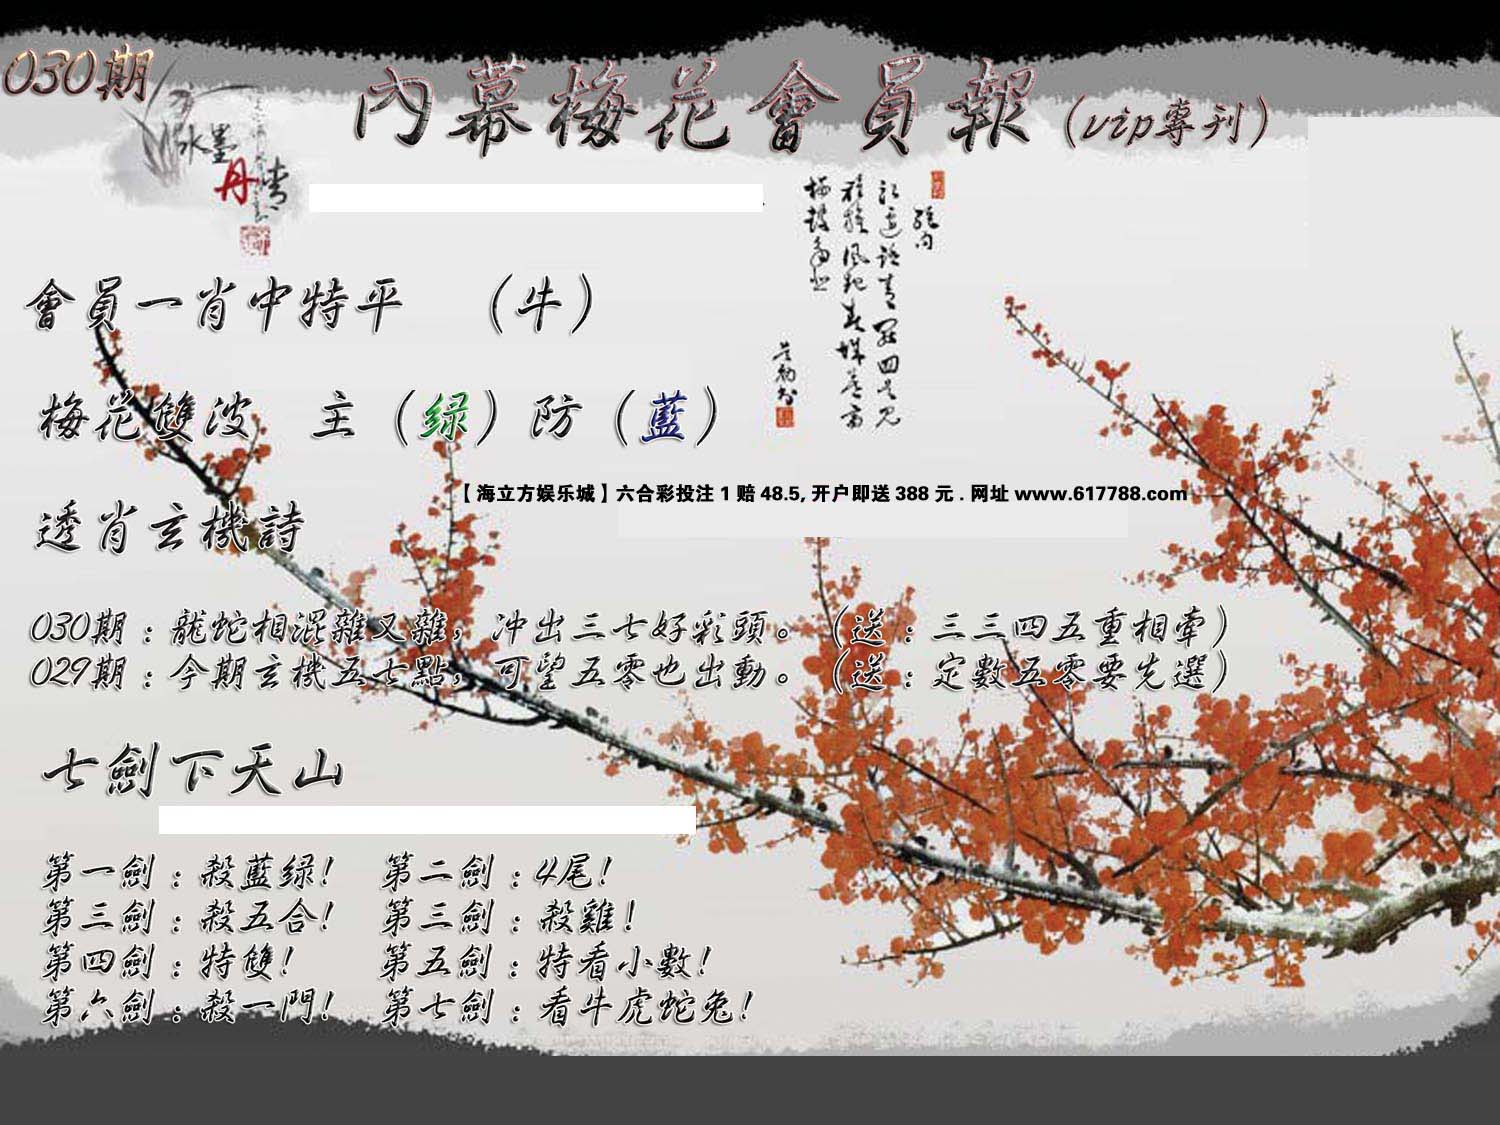 030期
內幕梅花會員報(vip專刊)
水墨
丹青
會員一肖中特平 (牛)
梅花雙波 主(绿)防(藍)
【海立方娱乐城】六合彩投注1赔48.5,开户即送388元.网址www.617788.com
透肖玄機詩
030期:龍蛇相混雜又雜,冲出三七好彩頭。(送:三三四五重相牽)
029期:今期玄機五七點,可望五零也出動。(送:定數五零要先選)
七劍下天山
第一劍:殺藍绿! 第二劍:4尾!
第三劍:殺五合! 第三劍:殺雞!
第四劍:特雙! 第五劍:特看小數!
第六劍:殺一門! 第七劍:看牛虎蛇兔!